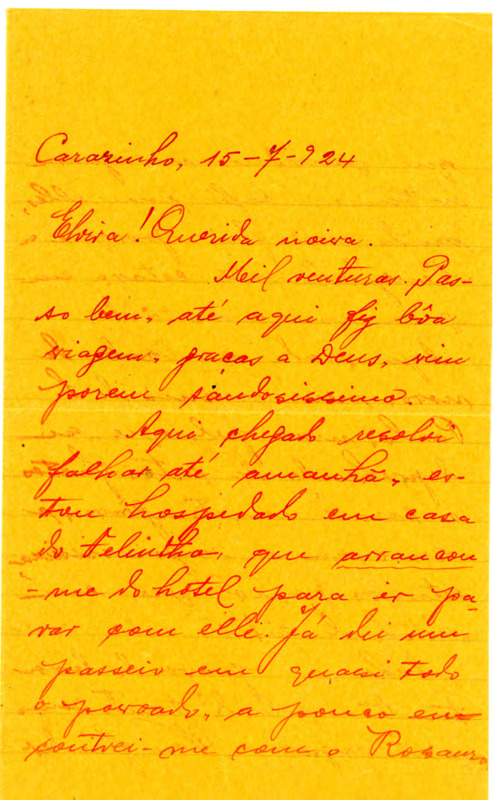 Carazinho, 15-7-924
Elvira! Querida noiva.
Mil venturas. Pas-
so bem, até aqui fiz bôa
viagem, graças a Deus, vim
porem saudosissimo.
Aqui chegado resolvi
falhar até amanhã, es-
tou hospedado em casa
do Felintho, que arrancou
-me do hotel para ir pa-
rar com elle. Já dei um
passeio em quasi todo
o povoado, a pouco en-
contrei-me com o Rosauro